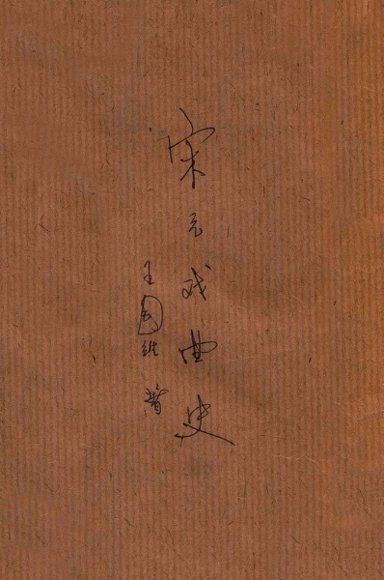 宋元戏曲史
王国维著